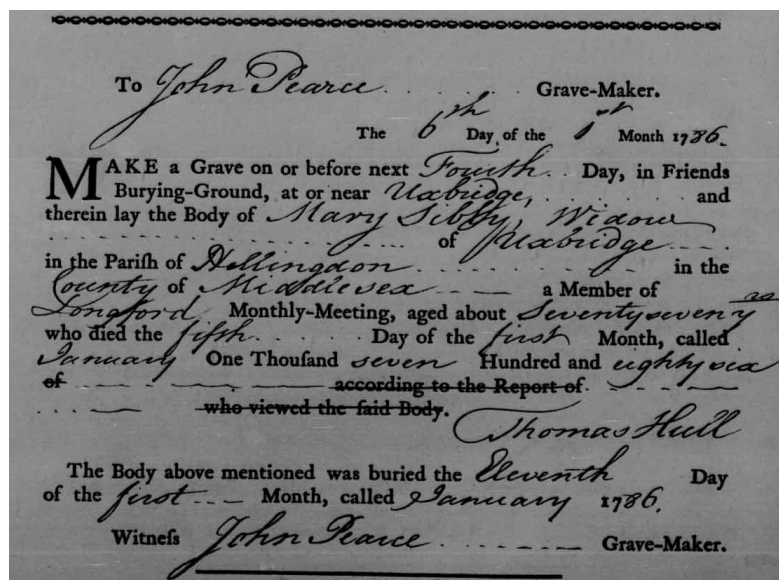 To John Pearce . . . . . Grave-Maker.
The 6th Day of the 1st Month 1786.
MAKE a Grave on or before next Fourth . . Day, in Friends
Burying-Ground, at or near Uxbridge, . . . . . . and
therein lay the Body of Mary Sibly, Widow
. . . . . . . . . . . . of Uxbridge . . . .
in the Pariſh of Hellingdon . . . . . . . . in the
County of Middlesex - - - a Member of
Longford, Monthly-Meeting, aged about Seventyseven yrs
who died the fifth . . . . . Day of the first Month, called
January One Thouſand seven Hundred and eighty six
of - - - - - according to the Report of . - - -
. . . - who viewed the ſaid Body.
Thomas Hull
The Body above mentioned was buried the Eleventh Day
of the first - - Month, called January 1786.
Witneſs John Pearce . . - - - - Grave-Maker.